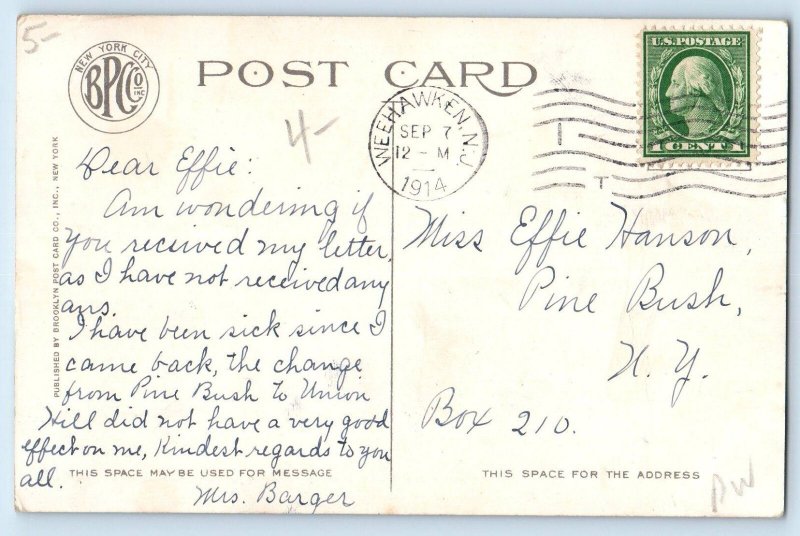 5-
NEW YORK CITY
BPCCO
INC
POST CARD
U.S. POSTAGE
1 CENT 1
WEEHAWKEN, N.J.
SEP 7
12-M
1914
T
4-
PUBLISHED BY BROOKLYN POST CARD CO., INC., NEW YORK
Dear Effie:
Am wondering if
you received my letter,
as I have not received any
ans.
I have been sick since I
came back, the change
from Pine Bush to Union
Hill did not have a very good
effect on me, Kindest regards to you
all.
Mrs. Barger
THIS SPACE MAY BE USED FOR MESSAGE
Miss Effie Hanson,
Pine Bush,
N.Y.
Box 210.
THIS SPACE FOR THE ADDRESS